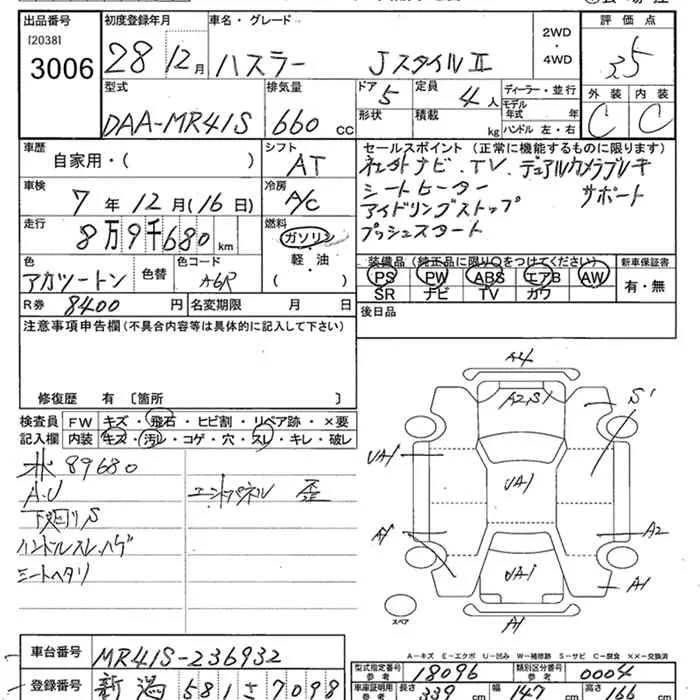 出品番号 初度登録年月 車名・グレード 2WD・4WD 評価点
[2038]
3006 28年12月 ハスラー JスタイルⅡ 3.5
型式 排気量 ドア 5 定員 4人 ディーラー・並行 外装 内装
形状 積載 kg モデル年式 年
DAA-MR41S 660cc ハンドル 左・右 C C
車歴 シフト セールスポイント（正常に機能するものに限ります）
自家用・( ) AT 社外ナビ．TV．デュアルカメラブレーキサポート
車検 冷房 シートヒーター
7年12月(16日) A/C アイドリングストップ
走行 燃料 プッシュスタート
8万9千680km ガソリン
色 色替 色コード 軽・油 装備品（純正品に限り○をつけてください） 新車保証書
アカツートン A6R ( ) PS PW ABS エアB AW 有・無
SR ナビ TV カワ
R券 8400円 名変期限 月 日 後日品
注意事項申告欄（不具合内容等は具体的に記入して下さい）
修復歴 有〔箇所 〕
検査員 FW キズ・飛石・ヒビ割・リペア跡・×要
記入欄 内装 キズ・汚レ・コゲ・穴・スレ・キレ・破レ
89680
A.U エンドパネル 歪
下廻りS
ハンドルスレ,ハゲ
シートヘタリ
A4
A2,S1
S1
UA1
UA1
A1
A2
UA1
A1
A1
スペア
A－キズ E－エクボ U－凹み W－補修跡 S－サビ C－腐食 XX－交換済
車台番号 MR41S-236932
型式指定番号 参考 18096 類別区分番号 参考 0004
登録番号 新潟 581 7098
車庫証明用 参考 長さ 339cm 幅 147cm 高さ 166cm